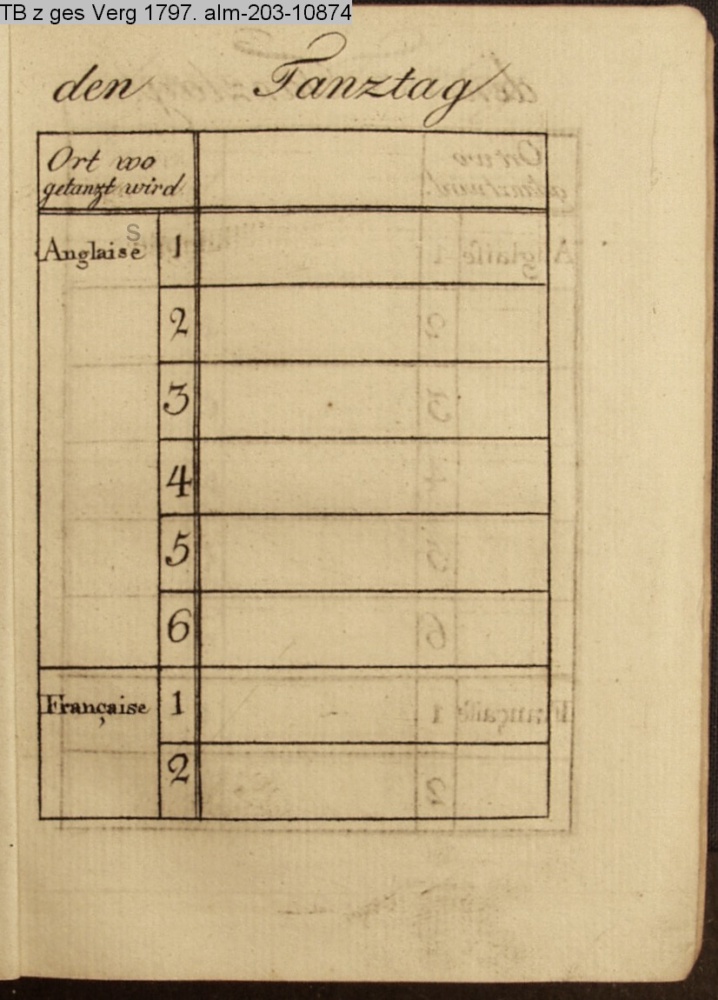 TB z ges Verg 1797. alm-203-10874
den Tanztag
Ort wo
getanzt wird
S
Anglaise 1
2
3
4
5
6
Française 1
2